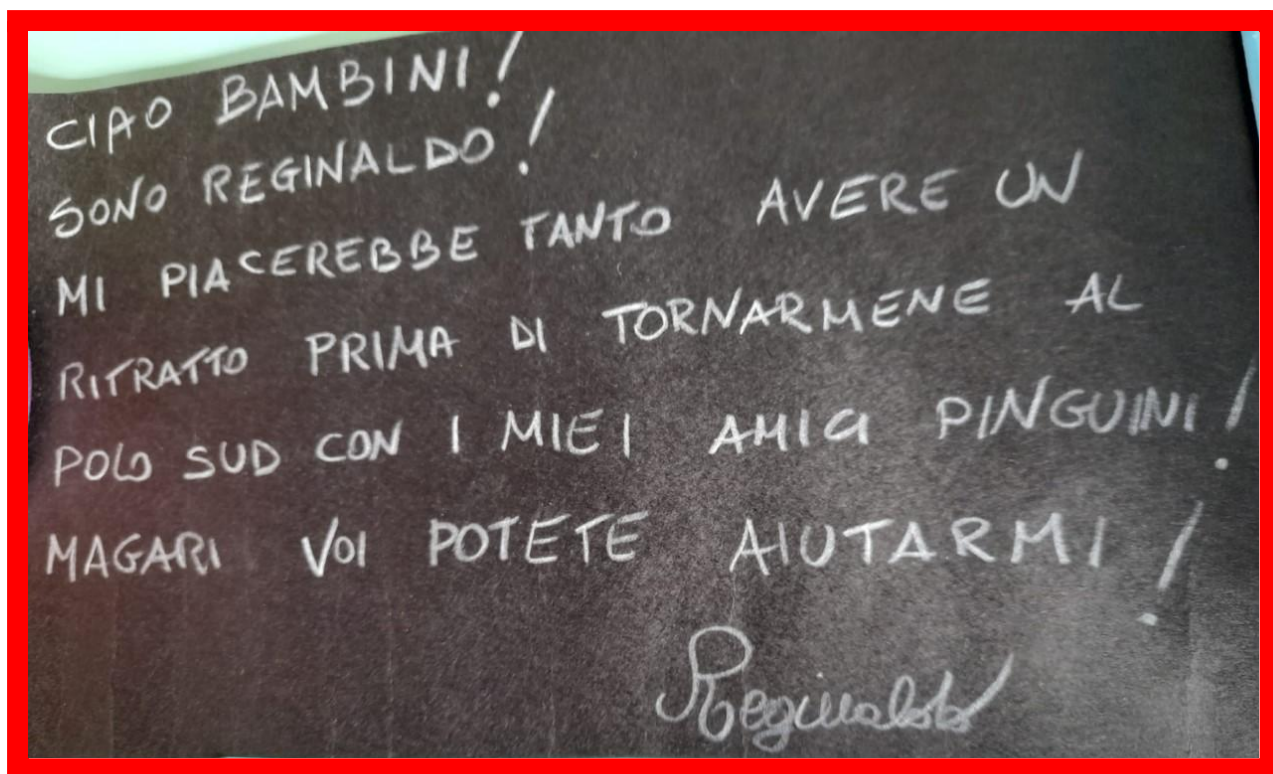 CIAO BAMBINI!
SONO REGINALDO!
MI PIACEREBBE TANTO AVERE UN
RITRATTO PRIMA DI TORNARMENE AL
POLO SUD CON I MIEI AMICI PINGUINI!
MAGARI VOI POTETE AIUTARMI!
Reginaldo